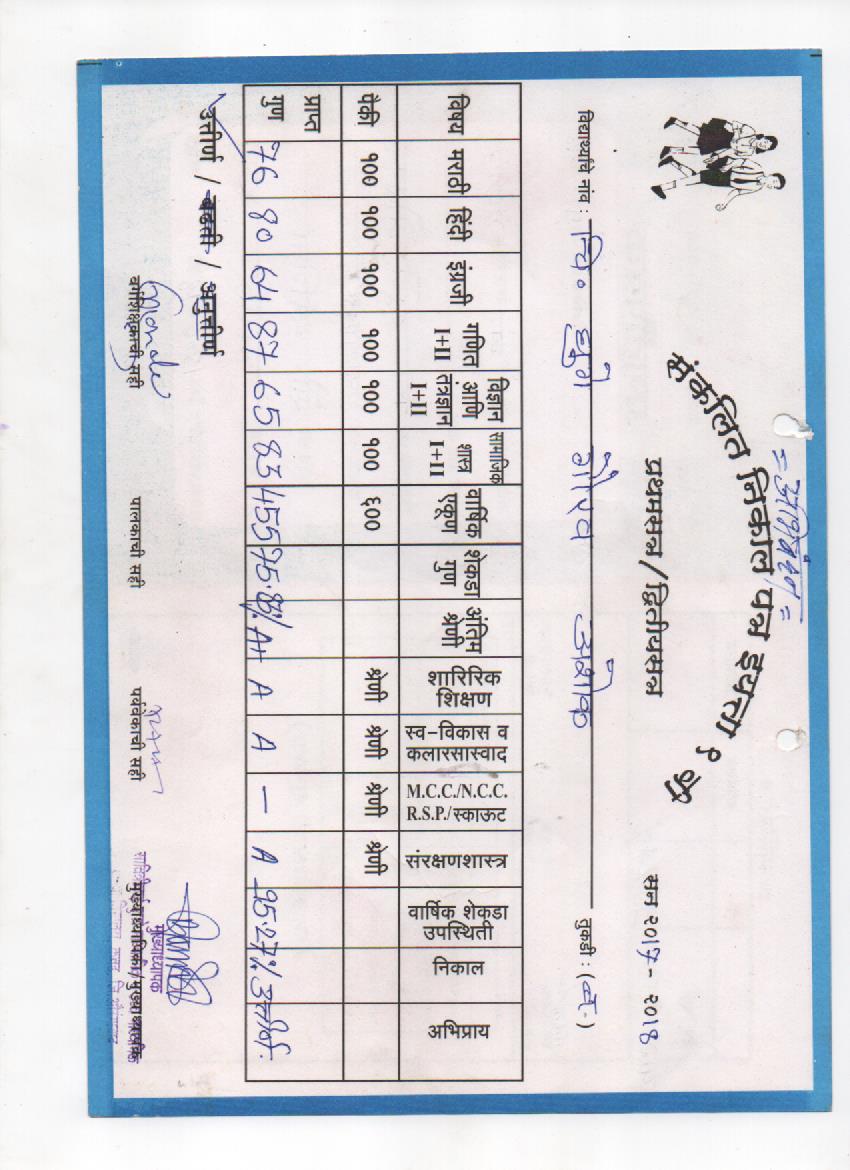 = अभिनंदन =
संकलित निकाल पत्र इयत्ता ९ वी
प्रथमसत्र/द्वितीयसत्र
सन २०१७ - २०१८
विद्यार्थ्याचे नांव : चि. घुगे गौरव अशोक तुकडी : (क.)
विषय मराठी हिंदी इंग्रजी गणित I+II विज्ञान आणि तंत्रज्ञान I+II सामाजिक शास्त्र I+II वार्षिक एकूण शेकडा गुण अंतिम श्रेणी शारिरिक शिक्षण स्व-विकास व कलारसास्वाद M.C.C./N.C.C. R.S.P./स्काऊट संरक्षणशास्त्र वार्षिक शेकडा उपस्थिती निकाल अभिप्राय
पैकी १०० १०० १०० १०० १०० १०० ६०० श्रेणी श्रेणी श्रेणी श्रेणी
प्राप्त गुण 76 80 64 87 65 83 455 75.8% A+ A A — A 95.27% उत्तीर्ण.
उत्तीर्ण / बढती / अनुत्तीर्ण
वर्गशिक्षकाची सही पालकाची सही पर्यवेक्षकाची सही मुख्याध्यापिका/मुख्याध्यापक
मुख्याध्यापक